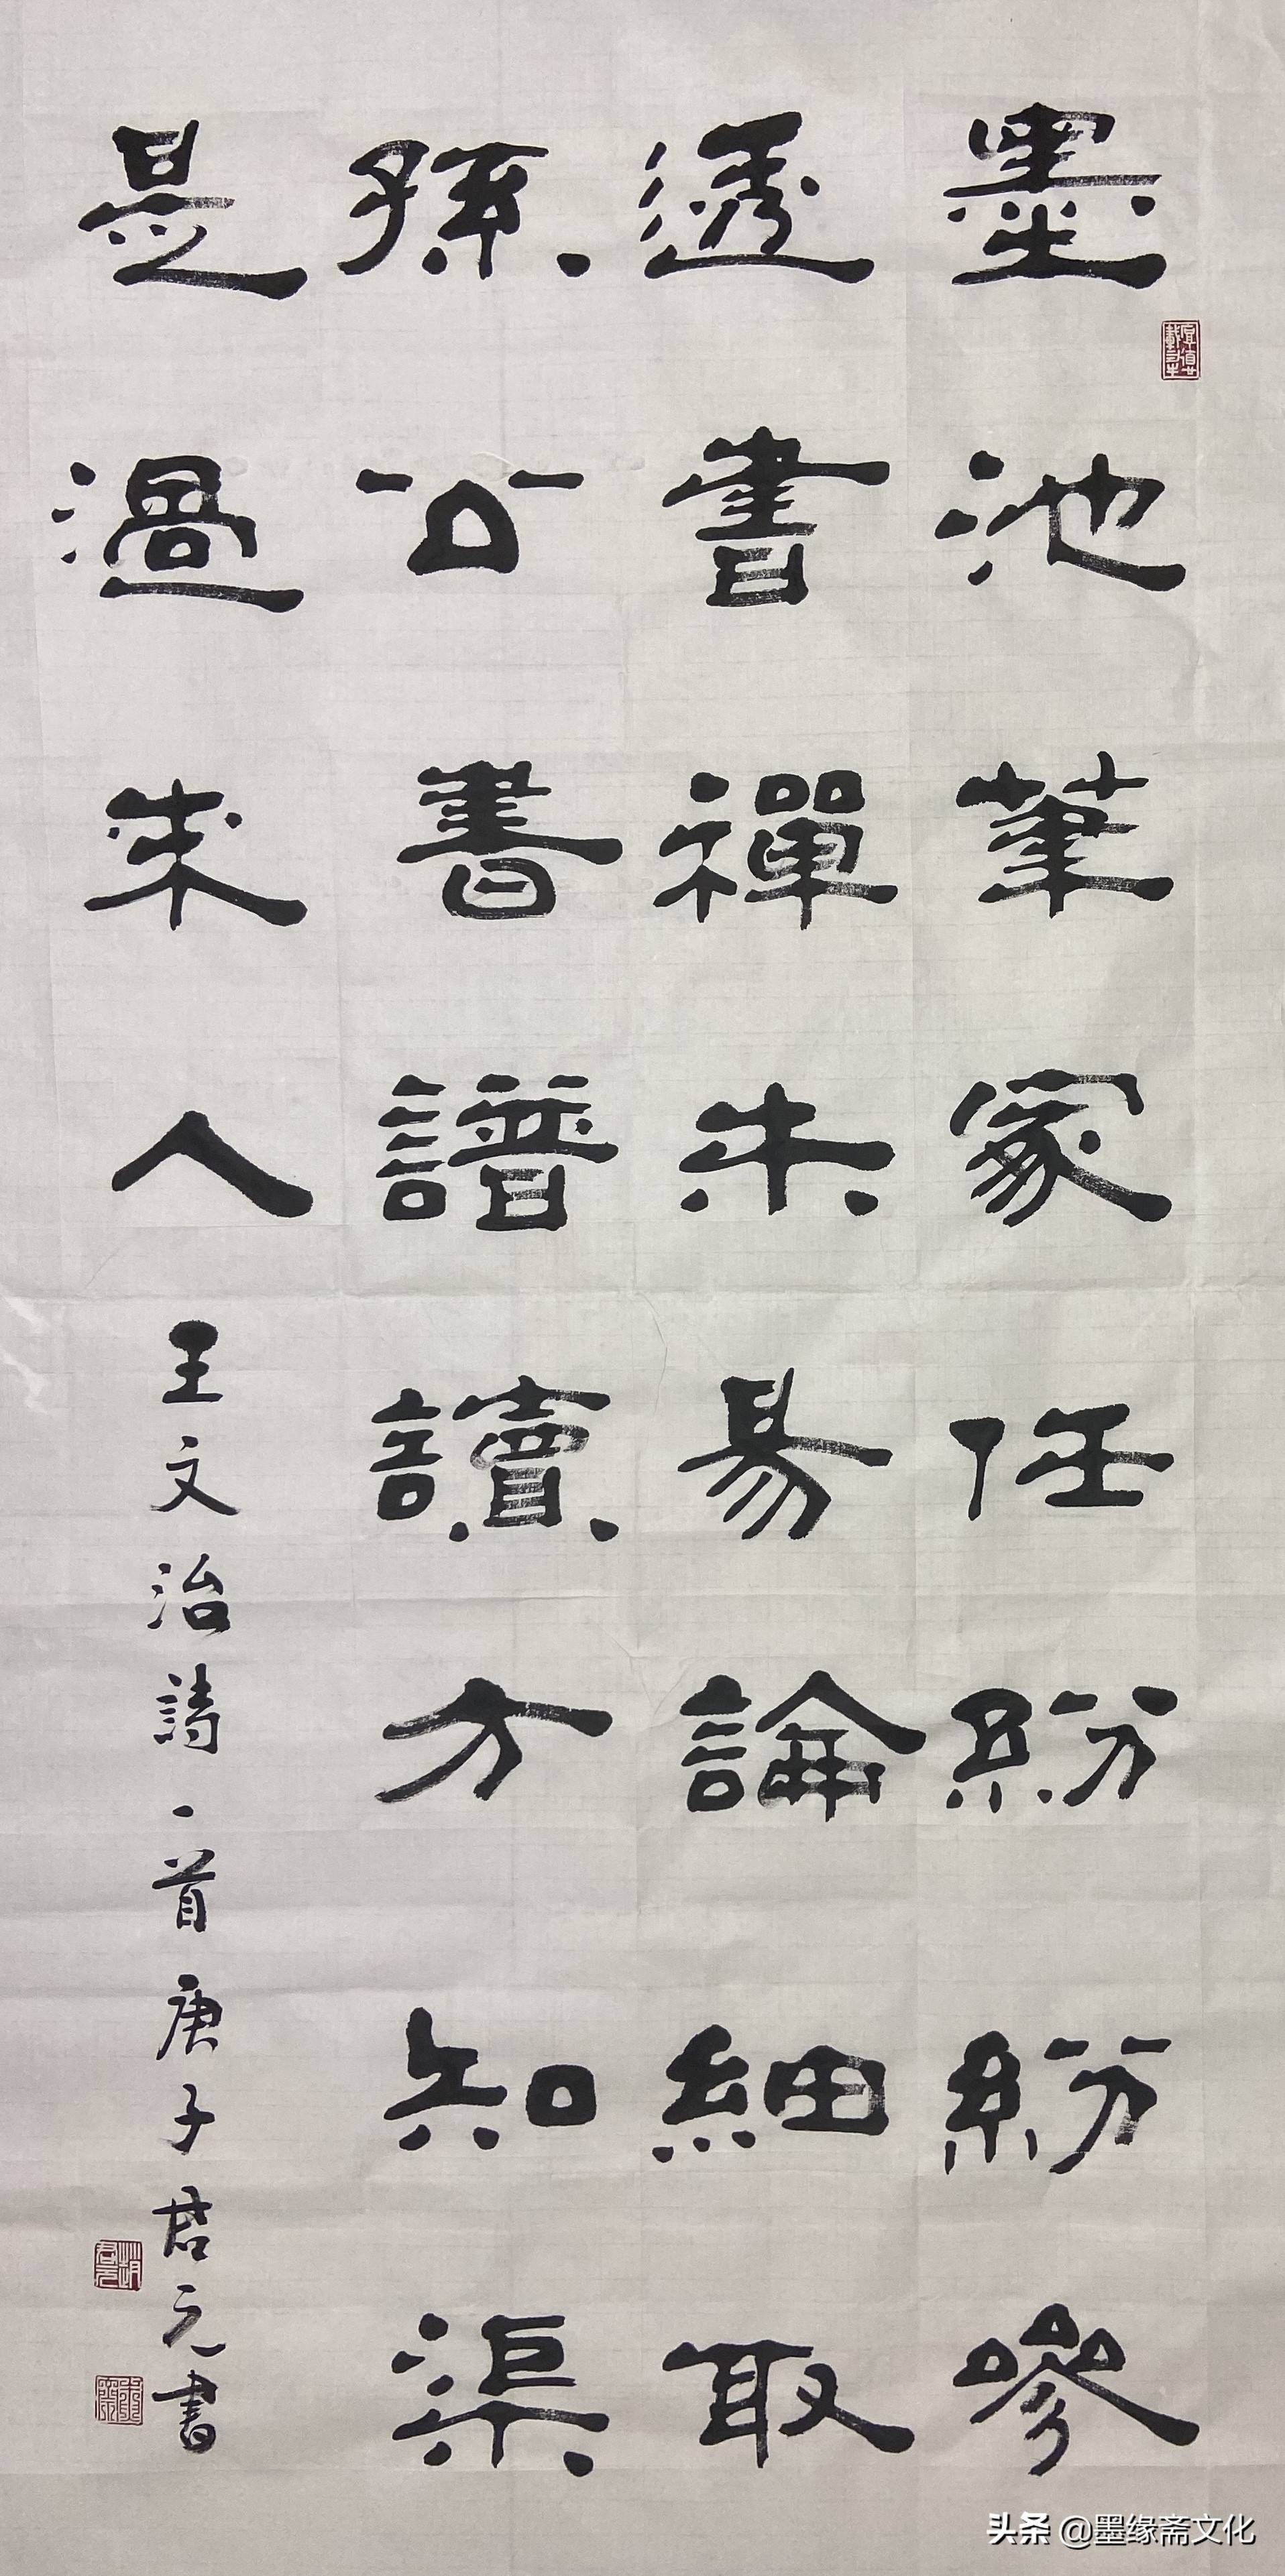 墨池筆冢任紛紛參
透書禪未易論細取
孫公書譜讀方知渠
是過來人
王文治詩一首庚子君元書
头条 @墨缘斋文化